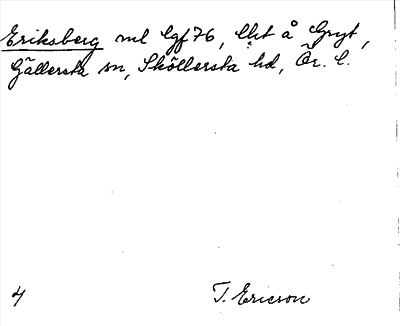 Eriksberg ml Cgf 76, lht å Gryt,
Gällersta sn, Sköllersta hd, Ör. l.
4 T. Ericson